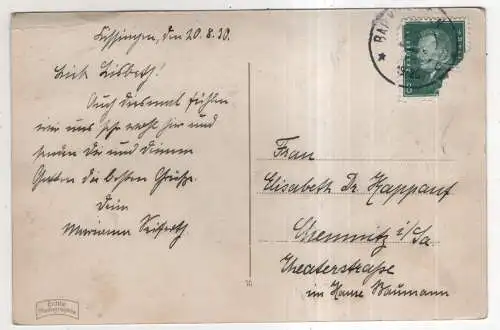 Kissingen, den 20.8.30.
Lieb Lisbeth!
Auch diesmal fühlen
wir uns sehr wohl hier und
senden Dir und Deinem
Gatten die besten Grüße.
Dein
Marianne Seiferth
BAD
Frau
Elisabeth Dr. Kappauf
Chemnitz i/Sa
Theaterstraße
im Hause Baumann
Echte
Photographie